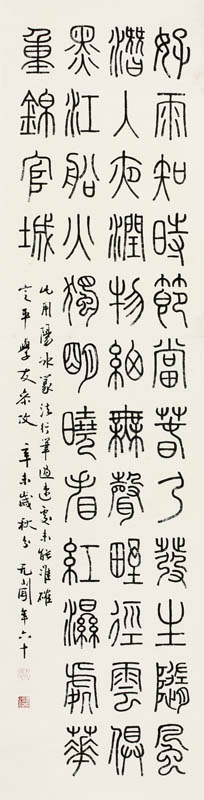 好雨知時節當春乃發生隨風
潛入夜潤物細無聲野徑雲俱
黑江船火獨明曉看紅濕處華
重錦官城
此用陽冰篆法行筆過速處未能準確
平學友 政 辛未歲秋 年六十